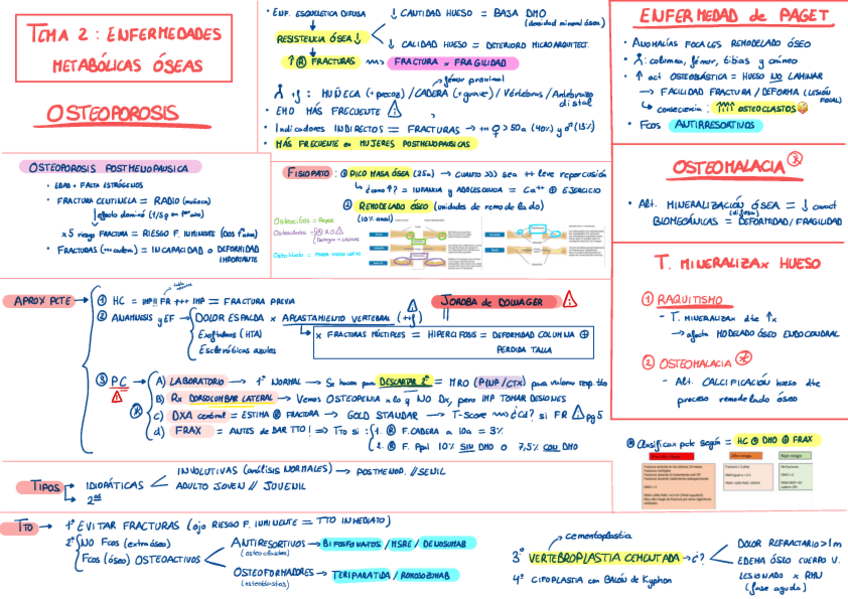 TEMA 2: ENFERMEDADES
METABÓLICAS ÓSEAS
OSTEOPOROSIS
• ENF. ESQUELÉTICA DIFUSA
↓ CANTIDAD HUESO = BAJA DMO
(densidad mineral ósea)
RESISTENCIA ÓSEA ↓
↓ CALIDAD HUESO = DETERIORO MICROARQUITECT.
↑ FRACTURAS → FRACTURA x FRAGILIDAD
fémur proximal
+f: MUÑECA (+precoz) / CADERA (+grave) / Vértebras / Antebrazo
distal
• EMO MÁS FRECUENTE
• Indicadores INDIRECTOS = FRACTURAS → ++ ♀ >50a (40%) y ♂ (13%)
• MÁS FRECUENTE en MUJERES POSTMENOPAUSICAS
ENFERMEDAD de PAGET
• ANOMALÍAS FOCALES REMODELADO ÓSEO
: columna, fémur, tibias y cráneo
• ↑ act OSTEOBLÁSTICA = HUESO NO LAMINAR
→ FACILIDAD FRACTURA / DEFORMA (LESIÓN
FOCAL)
consecuencia: ↑↑↑ OSTEOCLASTOS
• FCOS ANTIRRESORTIVOS
OSTEOPOROSIS POSTMENOPAUSICA
• EDAD + FALTA ESTRÓGENOS
• FRACTURA CENTINELA = RADIO (muñeca)
efecto dominó (1/5 en 1er año)
x5 riesgo FRACTURA = RIESGO F. INMINENTE (DOS 1os años)
• FRACTURAS (++ cadera) = INCAPACIDAD o DEFORMIDAD
IMPORTANTE
FISIOPATO: ① PICO MASA ÓSEA (25a) → CUANTO >>> sea ++ leve repercusión
¿como ↑? = INFANCIA y ADOLESCENCIA = Ca++ ⊕ EJERCICIO
② REMODELADO ÓSEO (unidades de remodelado)
(10% anual)
OSTEOMALACIA
• Alt. MINERALIZACIÓN ÓSEA = ↓ caract
(difusa)
BIOMECÁNICAS = DEFORMIDAD/FRAGILIDAD
T. MINERALIZAx HUESO
① RAQUITISMO
- T. MINERALIZAx dte ↑x
→ afecta MODELADO ÓSEO ENDOCONDRAL
② OSTEOMALACIA
- Alt. CALCIFICACIÓN hueso dte
proceso remodelado óseo
APROX PCTE
① HC = IMP!! FR +++ IMP = FRACTURA PREVIA
② ANAMNESIS y EF → DOLOR ESPALDA x APLASTAMIENTO VERTEBRAL (++f)
Escleróticas azules
JOROBA de DOWAGER
x FRACTURAS MÚLTIPLES = HIPERCIFOSIS = DEFORMIDAD COLUMNA ⊕
PERDIDA TALLA
③ PC → A) LABORATORIO → 1º NORMAL → Se hacen para DESCARTAR 2º = MRO (PINP/CTX) para valorar resp tto
B) Rx DORSOLUMBAR LATERAL → Vemos OSTEOPENIA x lo q NO Dx, pero IMP TOMAR DESIONES
C) DXA central = ESTIMA FRACTURA → GOLD STANDAR → T-Score → ¿Cd? si FR pg5
d) FRAX = ANTES de DAR TTO! ⇒ Tto si: 1. F. CADERA a 10a = 3%
2. F. Ppal 10% SIN DMO o 7,5% CON DMO
Clasificax pcte según = HC ⊕ DMO ⊕ FRAX
TIPOS
IDIOPÁTICAS
INVOLUTIVAS (análisis NORMALES) → POSTMENOP. // SENIL
ADULTO JOVEN // JUVENIL
2as
TTO → 1º EVITAR FRACTURAS (ojo RIESGO F. INMINENTE = TTO INMEDIATO)
2º NO FCOS (extraóseo)
FCOS (óseo) OSTEOACTIVOS
ANTIRESORTIVOS → BIFOSFONATOS / MSRE / DENOSUMAB
(osteoclastos)
OSTEOFORMADORES → TERIPARATIDA / ROMOSOZUMAB
(osteoblastos)
cementoplastia
3º VERTEBROPLASTIA CEMENTADA → ¿?
DOLOR REFRACTARIO >1m
EDEMA ÓSEO CUERPO V.
LESIONADO x RMN
(fase aguda)
4º CIFOPLASTIA con BALÓN de Kyphon